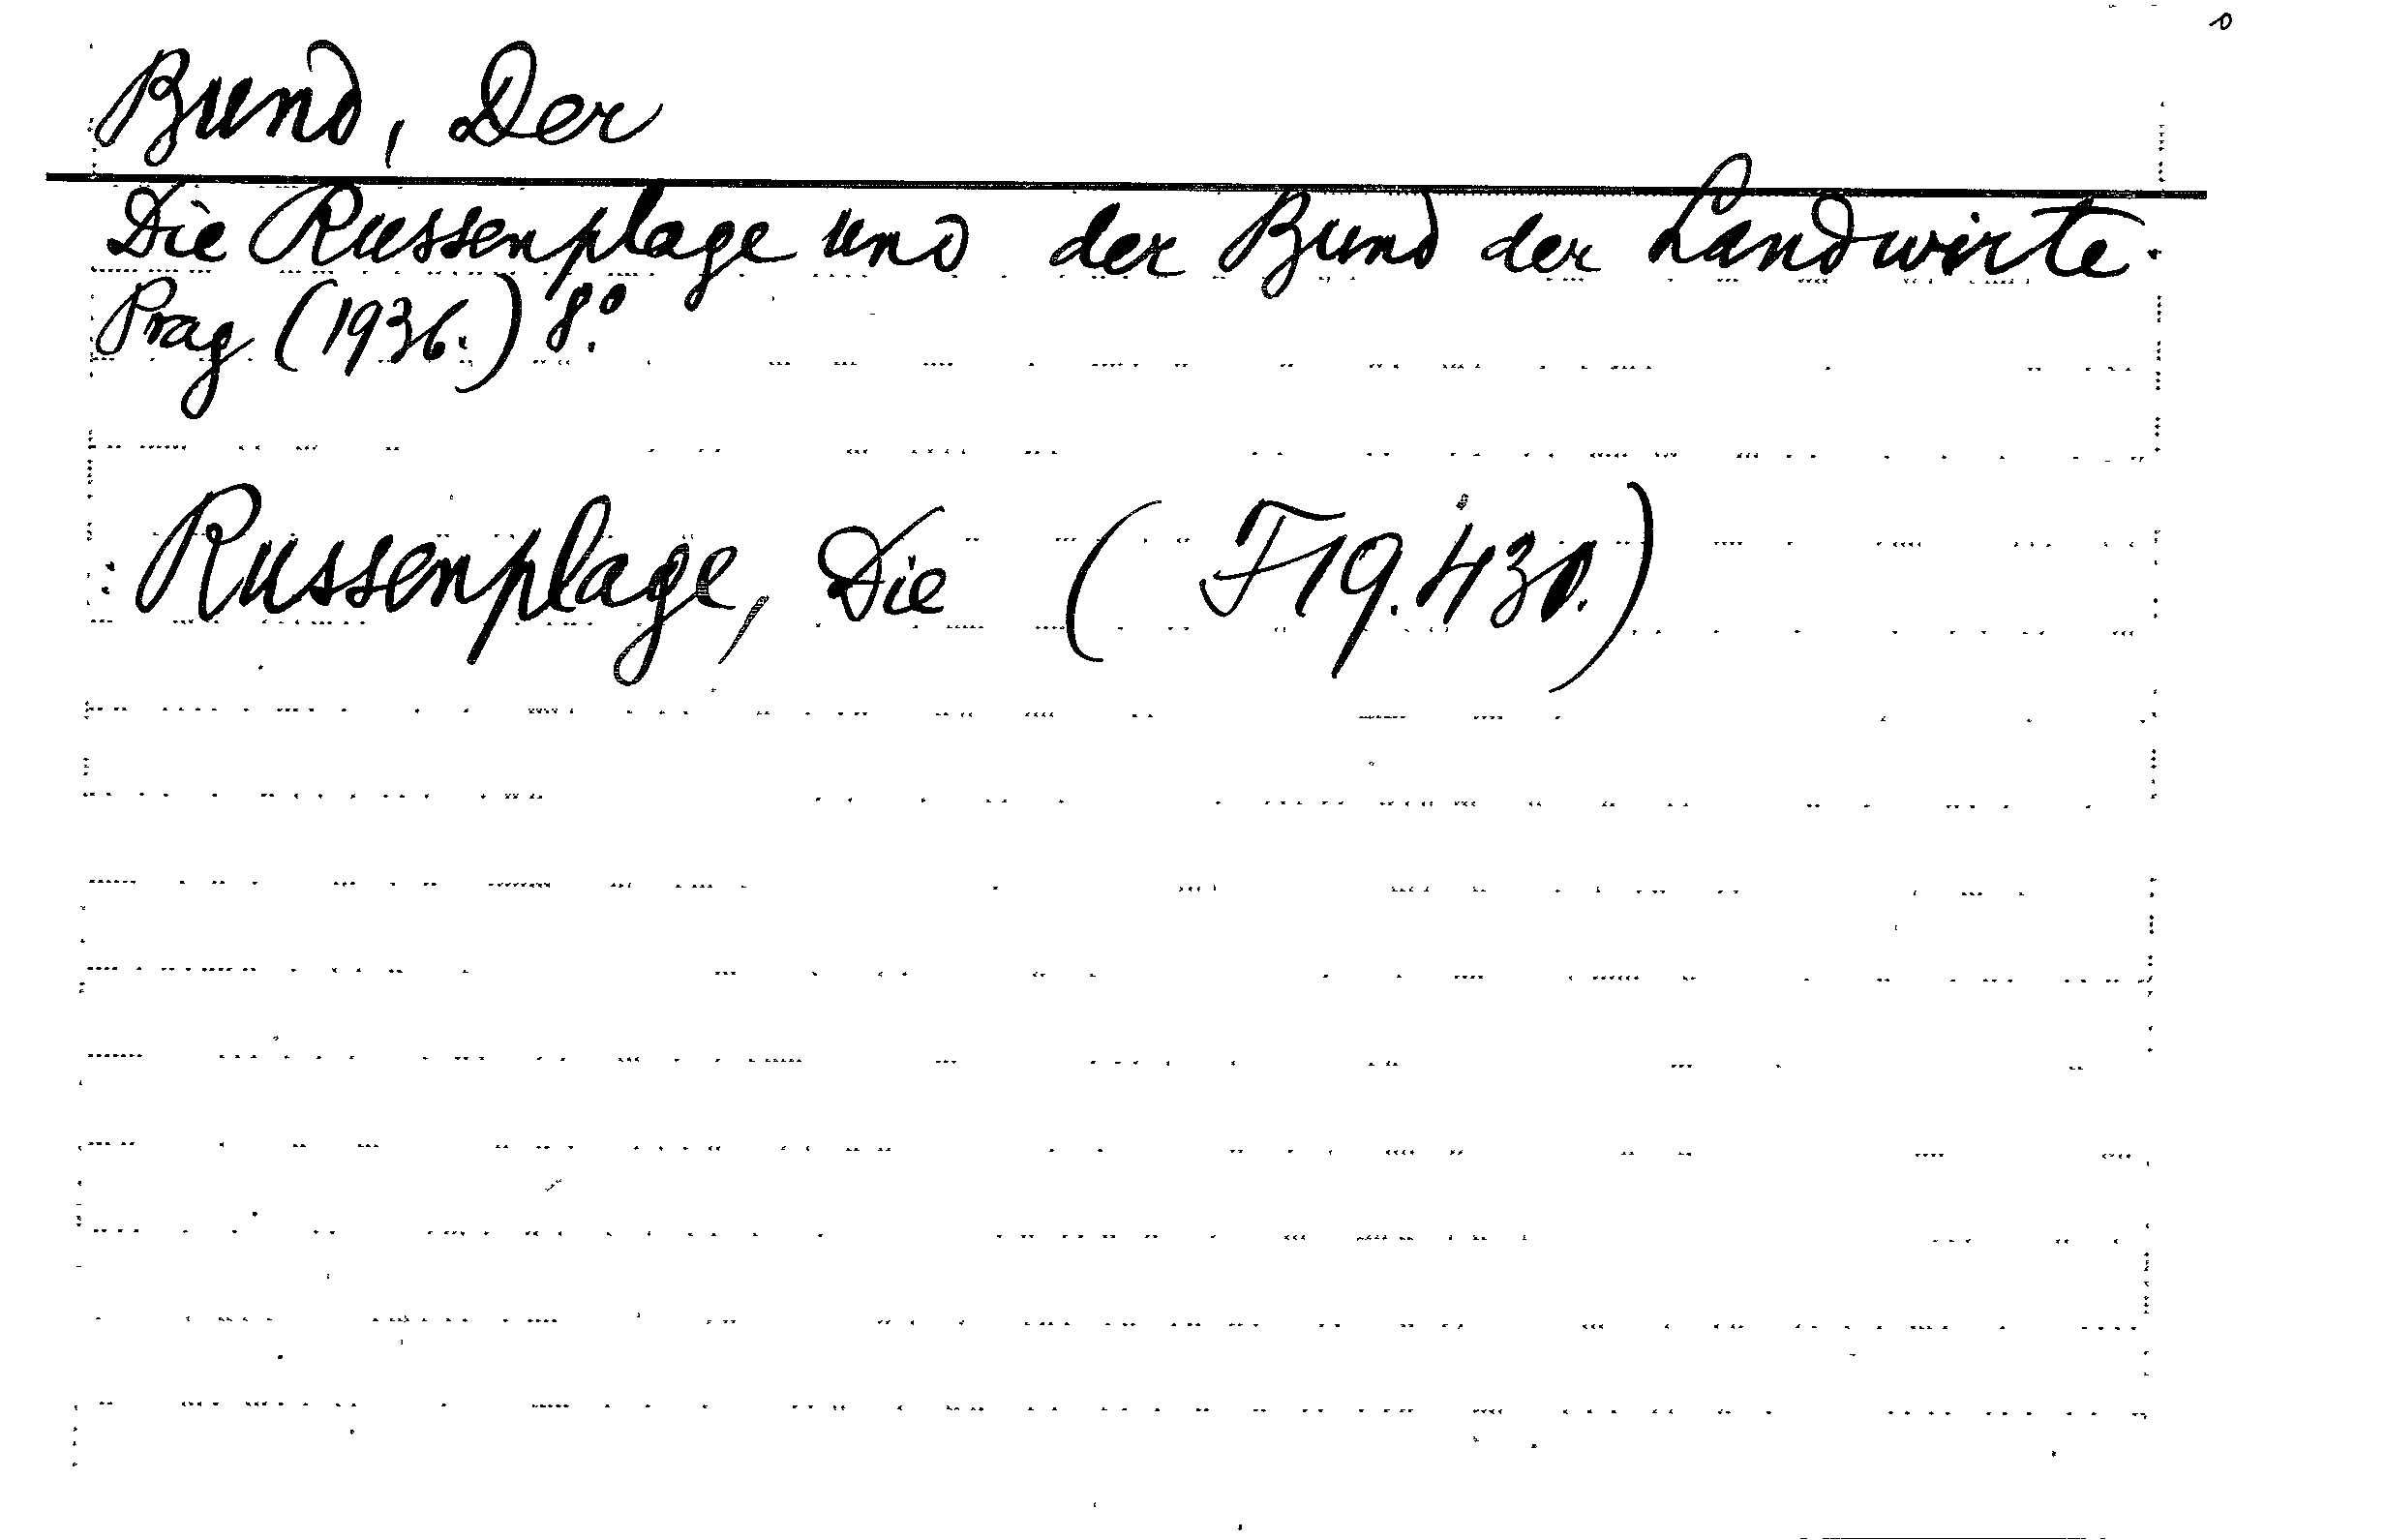 Bund, Der
Die Russenplage und der Bund der Landwirte.
Prag (1936.) 8.º
: Russenplage, Die ( F 19.430.)